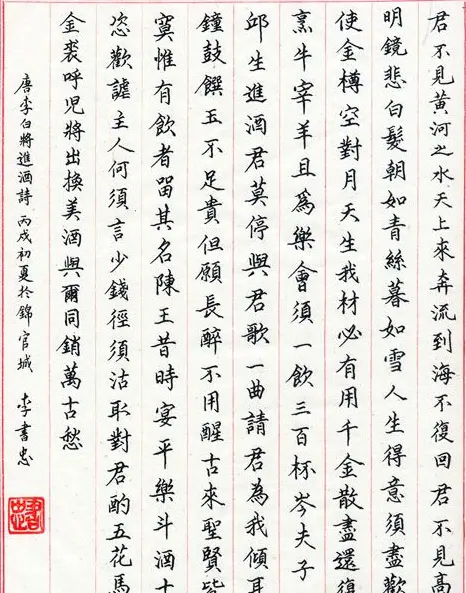 君不見黃河之水天上來奔流到海不復回君不見高
明鏡悲白髮朝如青絲暮如雪人生得意須盡歡
使金樽空對月天生我材必有用千金散盡還復
烹牛宰羊且爲樂會須一飲三百杯岑夫子
邱生進酒君莫停與君歌一曲請君為我傾耳
鐘鼓饌玉不足貴但願長醉不用醒古來聖賢皆
寞惟有飲者留其名陳王昔時宴平樂斗酒十
恣歡謔主人何須言少錢徑須沽取對君酌五花馬
金裘呼児將出換美酒與爾同銷萬古愁
唐李白將進酒詩 丙戌初夏於錦官城 李書忠
書忠